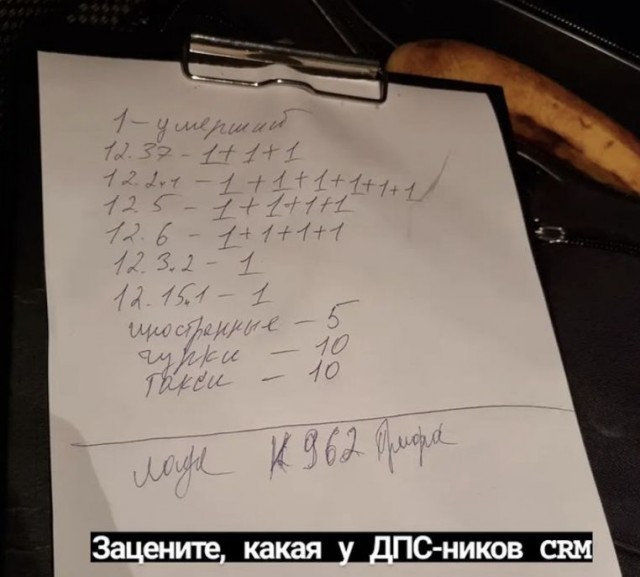 1 – умерший
12.37 – 1+1+1
12.2.1 – 1+1+1+1+1+1
12.5 – 1+1+1+1
12.6 – 1+1+1+1
12.3.2 – 1
12.15.1 – 1
иностранные – 5
чурки – 10
такси – 10
лада 962
Зацените, какая у ДПС-ников CRM